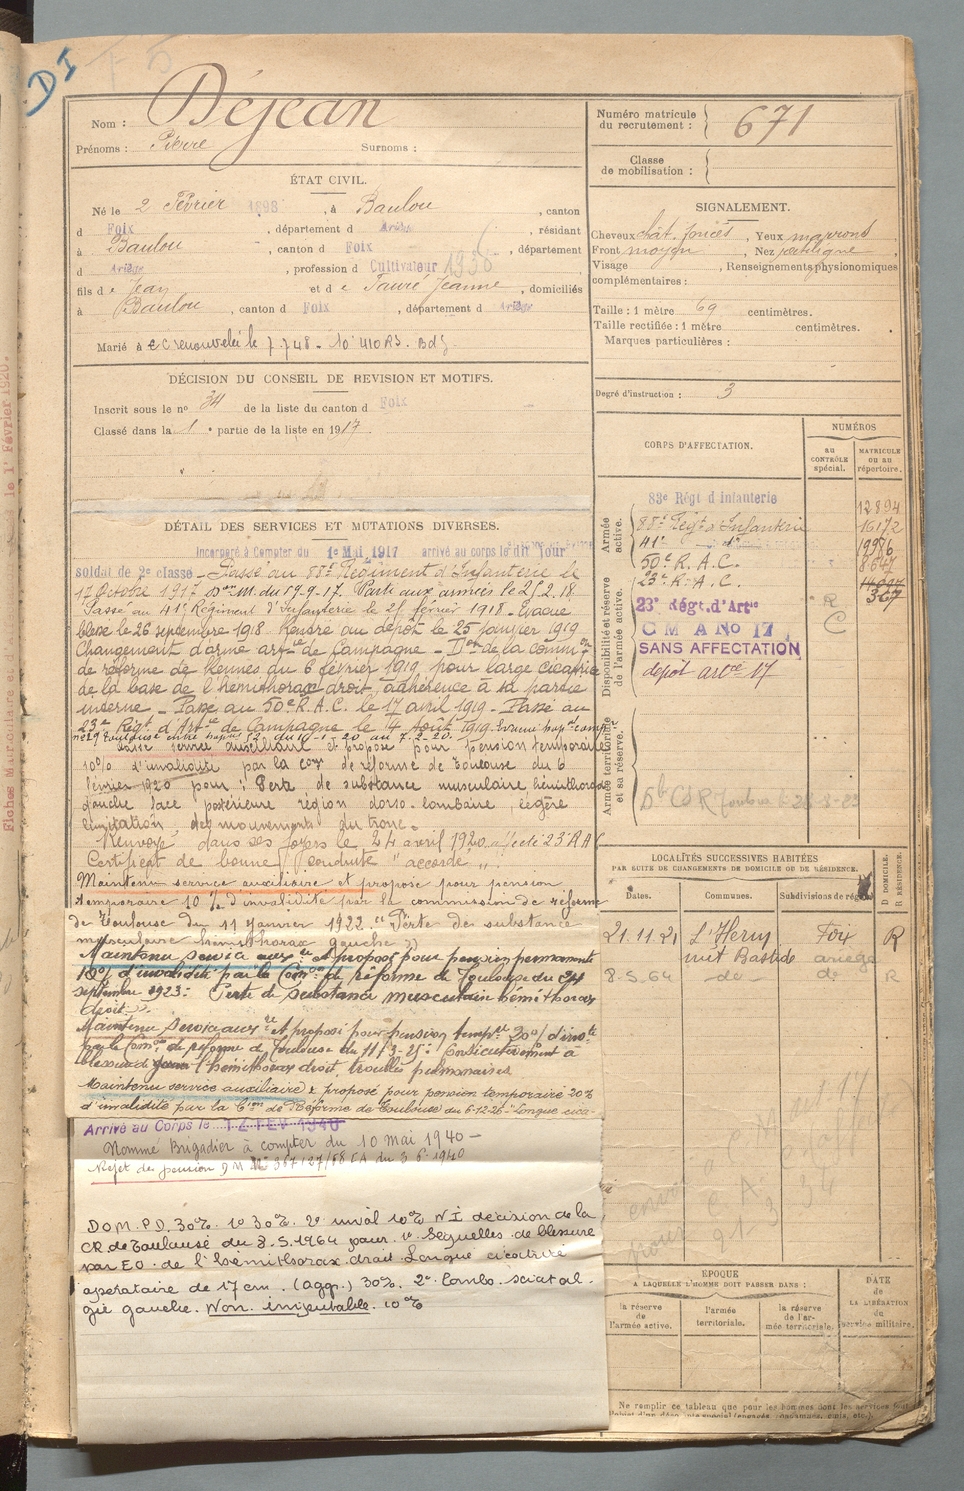 DI
Nom : Déjean
Prénoms : Pierre Surnoms :
Numéro matricule du recrutement : 671
Classe de mobilisation :
ÉTAT CIVIL.
Né le 2 Février 1898, à Baulou, canton
d Foix, département d Ariège, résidant
à Baulou, canton d Foix, département
d Ariège, profession d Cultivateur 1936
fils de Jean et de Fauré Jeanne, domiciliés
à Baulou, canton d Foix, département d Ariège
Marié à CC renouvelée le 7.7.48 - 10'410 RS. Bdg.
SIGNALEMENT.
Cheveux chât. foncés, Yeux marrons
Front moyen, Nez rectiligne
Visage , Renseignements physionomiques
complémentaires :
Taille : 1 mètre 69 centimètres.
Taille rectifiée : 1 mètre centimètres.
Marques particulières :
Degré d'instruction : 3
DÉCISION DU CONSEIL DE REVISION ET MOTIFS.
Inscrit sous le no 34 de la liste du canton d Foix
Classé dans la 1e partie de la liste en 1917.
DÉTAIL DES SERVICES ET MUTATIONS DIVERSES.
Incorporé à Compter du 1er Mai 1917 arrivé au corps le dit jour
soldat de 2e classe - Passé au 88e Régiment d'Infanterie le
17 Octobre 1917 Don M. du 17.9.17. Parti aux armées le 21.2.18.
Passé au 41e Régiment d'Infanterie le 25 février 1918 - Evacué
blessé le 26 septembre 1918. Rentré au dépôt le 25 janvier 1919
Changement d'arme artie de Campagne - Don de la Commion
de réforme de Rennes du 6 février 1919 pour large cicatrice
de la base de l'hémithorax droit, adhérence à sa partie
interne - Passé au 50e R.A.C. le 17 avril 1919 - Passé au
23e Régt d'Artie de Campagne le 14 Août 1919.
Classé service auxiliaire et proposé pour pension temporaire
10% d'invalidité par la Con de réforme de Toulouse du 6
février 1920 pour : Perte de substance musculaire hémithorax
gauche face postérieure région dorso-lombaire, légère
limitation des mouvements du tronc.
Renvoyé dans ses foyers le 24 avril 1920 affecté 23e RAC
Certificat de bonne conduite "accordé".
Maintenu service auxiliaire et proposé pour pension
temporaire 10% d'invalidité par la commission de réforme
de Toulouse du 11 janvier 1922 "Perte de substance
musculaire hémithorax gauche"
Maintenu servic auxre et proposé pour pension permanente
10% d'invalidité par la Comon de réforme de Toulouse du 24
septembre 1923: Perte de substance musculaire hémithorax
droit.
Maintenu service auxre et proposé pour pension tempre 20% d'invté
par la Comon de réforme de Toulouse du 11-3-25: Consécutivement à
blessure de l'hémithorax droit, troubles pulmonaires.
Maintenu service auxiliaire & proposé pour pension temporaire 20%
d'invalidité par la Cion de Réforme de Toulouse du 6-12-26 "longue cica-
Arrivé au Corps le 12 FEV 1940
Nommé Brigadier à compter du 10 mai 1940 -
Rejet de pension
DOM. P.D. 30%. 1° 30%. 2° inval 10% N.I décision de la
CR de Toulouse du 8.5.1964 pour. 1° Séquelles de blessure
par EO de l'hémithorax droit. Longue cicatrice
opératoire de 17 cm. (agg.) 30%. 2° Lombo. sciatal-
gie gauche. Non imputable. 10%
CORPS D'AFFECTATION.
NUMÉROS
au CONTRÔLE spécial.
MATRICULE ou au répertoire.
Armée active.
83e Régt d'Infanterie 12894
88e Régt d'Infanterie 16172
41e do 19986
50e R.A.C. 8647
23e R.A.C.
Disponibilité et réserve de l'armée active.
23e Régt. d'Artie R 367
C M A No 17 C
SANS AFFECTATION
dépôt artie 17
Armée territoriale et sa réserve.
LOCALITÉS SUCCESSIVES HABITÉES
PAR SUITE DE CHANGEMENTS DE DOMICILE OU DE RÉSIDENCE.
Dates. Communes. Subdivisions de région. D. DOMICILE. R. RÉSIDENCE.
21.11.21 L'Herm Foix R
8-5-64 do do R
ÉPOQUE
A LAQUELLE L'HOMME DOIT PASSER DANS :
la réserve de l'armée active. l'armée territoriale. la réserve de l'armée territoriale.
DATE de LA LIBÉRATION du service militaire.
Ne remplir ce tableau que pour les hommes dont les services font